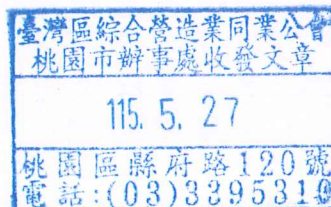 臺灣區綜合營造業同業公會
桃園市辦事處收發文章
115. 5. 27
桃園區縣府路120號
電話:(03)3395310